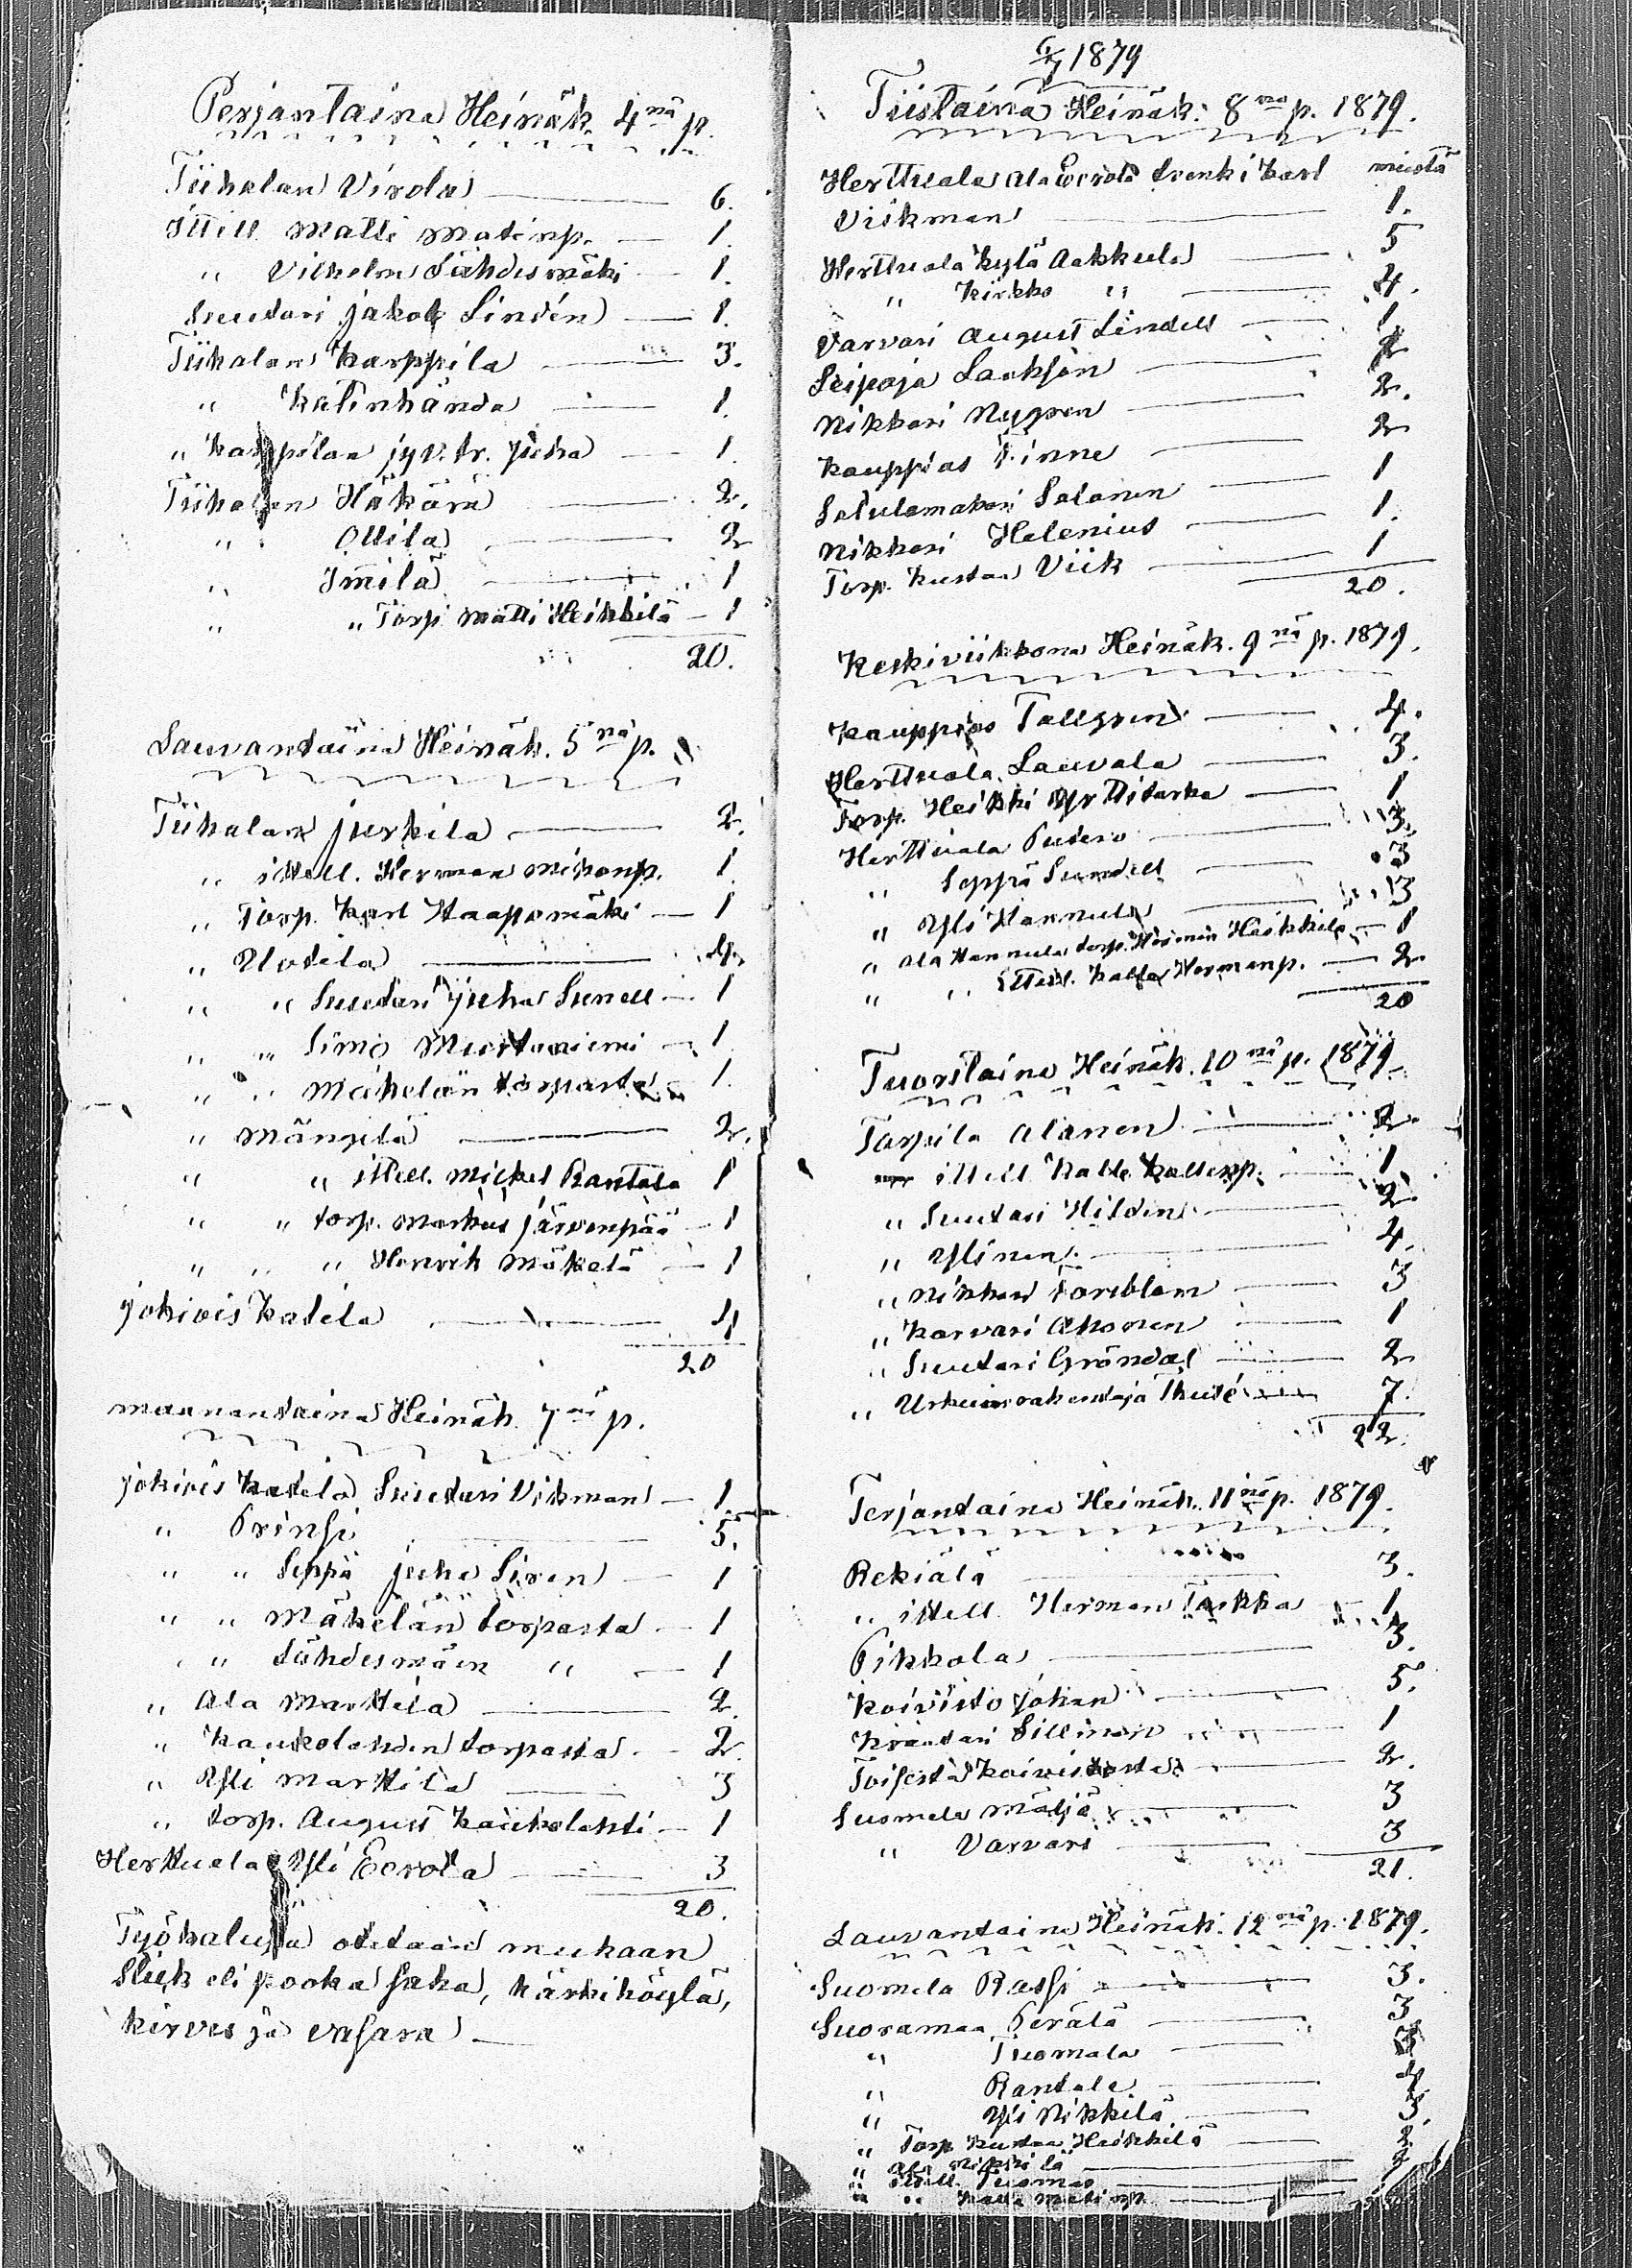 Perjantaina Heinäk. 4nä p.
Tiihalan Virola 6.
Ittell. Matti Matinp. 1.
" Vilhelm Lähdesmäki 1.
Suutari Jakob Lindén 1.
Tiihalan Karppila 3.
" Katinhända 1.
" Karppilan jyv. tr. Juha 1.
Tiihalan Häkärä 2.
" Ollila 2
" Immilä 1
" " Torp. Matti Heikkilä 1
20.
Lauvantaina Heinäk. 5nä p.
Tiihalan Jurkila 2.
" ittell. Herman Mikonp. 1.
" Torp. Karl Haapomäki 1
" Uotila 4.
" " Suutari Juha Sunell 1
" " Simo 1
" " Mäkelän torpasta 1.
" Mänpilä 2.
" " ittell. Mickel Rantala 1
" " torp. Markus Järvenpää 1
" " " Henrik Mäkelä 1
Jokiois Katila 4
20
Maanantaina Heinäk. 7nä p.
Jokiois Katila Suutari Vikman 1.
" Prinsi 5.
" " Seppä Juha Siren 1
" " Mäkelän torpasta 1
" " Lähdesmäen " 1
" Ala Marttila 2.
" Kaukolahden torpasta 2.
" Yli Marttila 3
" torp. August Kaukolahti 1
Herttuala Yli Eerola 3
20.
Työkaluja otetaan mukaan
Sliik eli pooka saha, kärkihöylä,
kirves ja vasara
6/7 1879
Tiistaina Heinäk. 8na p. 1879.
Herttuala Ala Eerola trenki Karl miestä
Vikman 1.
Herttuala Kylä Aakkula 5
" Kirkko " 4.
Varvari August Lindell 1
Seipaja Laaksón 2
Nikkari Nygren 2.
Kauppias Finne 2
Satulamakari Salonen 1
Nikkari Helenius 1.
Torp. Kustaa Viik 1
20.
Keskiviikkona Heinäk. 9nä p. 1879.
Kauppias Tallgren 4.
Herttuala Lauvala 3.
Torp. Heikki Yrttitarha 1
Herttuala Putero 3.
" Seppä Sundell 3
" Yli Hannula 3
" Ala Hannula torp. Herman Heikkilä 1
" " ittell. Kalle Hermanp. 2
20
Tuorstaina Heinäk. 10nä p. 1879
Torpila Alanen 2.
" ittell Kalle Kallenp. 1
" Suutari Hilden 2
" Ylinen 4.
" Nikkari Forsblom 3
" Karvari Ahonen 1
" Suutari Gröndal 2
" Urkuin rakentaja Thulé 7.
22.
Perjantaina Heinäk. 11nä p. 1879.
Rekiälä 3.
" ittell Herman Tarkka 1
Pikkola 3.
Koivisto Johan 5.
Kraatari Sillman 1
Toisesta Koivistosta 2.
Suomela Mäljä 3
" Varvari 3
21.
Lauvantaina Heinäk. 12nä p. 1879.
Suomela Rassi 3.
Suoramaa Perälä 3
" Tuomala 3
" Rantala 4
" Yli Nikkilä 3
" Torp Kustaa Heikkilä 2
" Ala Nikkilä 2
" ittell. Tuomas
" " Kalle Matinp.